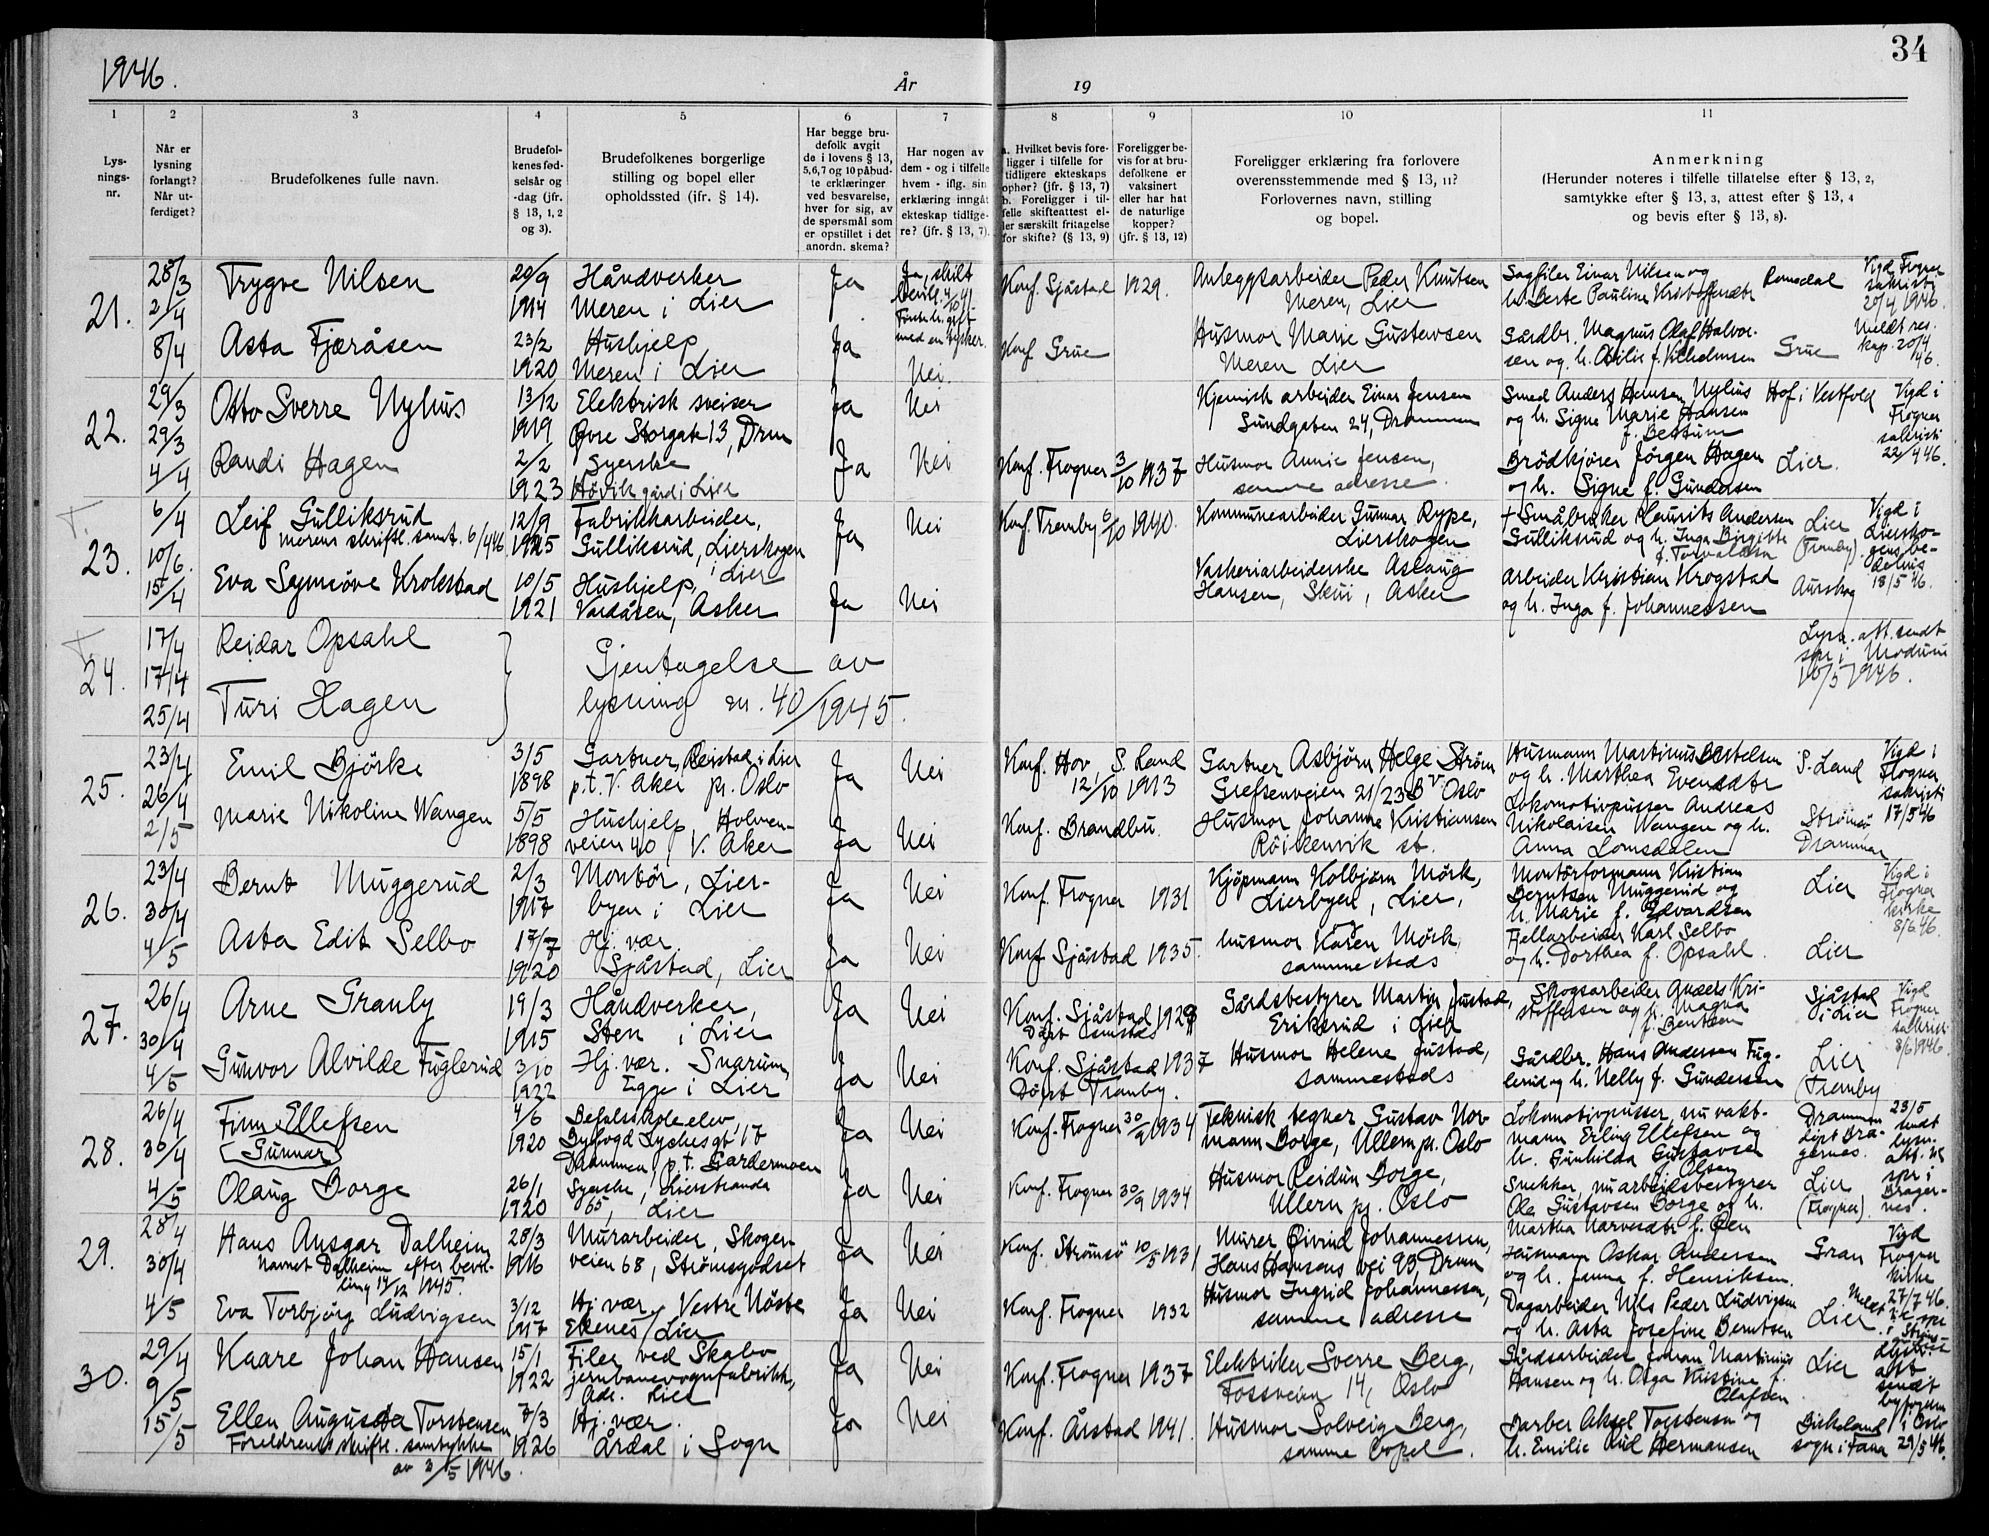 1946.
År
19
34
1
2
3
4
5
6
7
8
9
10
11
Lys-
nings-
nr.
Når er
lysning
forlangt?
Når ut-
ferdiget?
Brudefolkenes fulle navn.
Brudefol-
kenes fød-
selsår og
-dag (jfr.
§ 13, 1, 2
og 3).
Brudefolkenes borgerlige
stilling og bopel eller
opholdssted (jfr. § 14).
Har begge bru-
defolk avgit
de i lovens § 13,
5,6,7 og 10 påbud-
te erklæringer
ved besvarelse,
hver for sig, av
de spørsmål som
er opstillet i det
anordn. skema?
Har nogen av
dem - og i tilfelle
hvem - iflg. sin
erklæring inngåt
ekteskap tidlige-
re? (jfr. § 13, 7).
a. Hvilket bevis fore-
ligger i tilfelle for
tidligere ekteskaps
ophør? (jfr. § 13, 7)
b. Foreligger i til-
felle skifteattest el-
ler særskilt fritagelse
for skifte? (§ 13, 9)
Foreligger be-
vis for at bru-
defolkene er
vaksinert
eller har hat
de naturlige
kopper?
(jfr. § 13, 12)
Foreligger erklæring fra forlovere
overensstemmende med § 13, 11?
Forlovernes navn, stilling
og bopel.
Anmerkning
(Herunder noteres i tilfelle tillatelse efter § 13, 2,
samtykke efter § 13, 3, attest efter § 13, 4
og bevis efter § 13, 8).
21.
28/3
2/4
8/4
Trygve Nilsen
20/9
1914
Håndverker
Meren i Lier
Ja
Ja, skilt
Konf. Sjåstad 1929.
Anleggsarbeider Peder Knutsen
Meren, Lier
Sagfiler Einar Nilsen og
Romsdal
Vigd Frogner
sakristi
20/4 1946.
Asta Fjæråsen
23/2
1920
Hushjelp
Meren i Lier
Ja
Nei.
Konf. Grue
Husmor Marie Gustavsen
Meren Lier
Gårdbr. Magnus Olaf Halvor-
sen og h. Otilie f. Vilhelmsen
Grue
Meldt res.
kap. 20/4
46.
22.
29/3
29/3
4/4
Otto Sverre Nyhus
13/12
1919
Elektrisk sveiser
Øvre Storgate 13, Drm
Ja
Nei
Kjemisk arbeider Einar Jensen
Sundgaten 24, Drammen
Smed Anders Hansen Nyhus
og h. Signe Marie Hansen
Hof i Vestfold
Vigd i
Frogner
sakristi
22/4 46.
Randi Hagen
2/2
1923
Syerske
Høvik gård i Lier
Ja
Nei
Konf. Frogner 3/10 1937
Husmor Annie Jensen,
samme adresse.
Brødkjører Jørgen Hagen
og h. Signe f. Gundersen
Lier.
T.
23.
6/4
10/6.
15/4
Leif Gulliksrud
morens skriftl. samt. 6/4 46
12/9
1925
Fabrikkarbeider,
Gulliksrud, Lierskogen
i Lier
Ja
Nei
Konf. Tranby 6/10 1940.
Kommunearbeider Gunnar Rype,
Lierskogen
† Småbruker Laurits Andersen
Gulliksrud og h. Inga Birgitte
f. Torvaldsen
Lier
(Tranby).
Vigd i
Liersko-
gens be-
dehus
18/5 46.
Eva Synnøve Krokstad
10/5
1921
Hushjelp,
Vardåsen, Asker
Ja
Nei
Vaskeriarbeiderske Aslaug
Hansen, Skui, Asker
Arbeider Kristian Krogstad
og h. Inga f. Johannessen
Aurskog
T.
24.
17/4
17/4
25/4
Reidar Opsahl
Turi Hagen
Gjentagelse av
lysning nr. 40/1945.
Lysn. att. sendt
spr. i Modum
10/5 1946.
25.
23/4
26/4
2/5
Emil Bjørke
3/5
1898
Gartner, Reistad i Lier
p.t. V. Aker pr. Oslo
Ja
Nei
Konf. Hov, S. Land
12/10 1913
Gartner Asbjørn Helge Strøm
Grefsenveien 21/23 B V Oslo
og h. Marthea Evensdtr
S. Land
Vigd i
Frogner
sakristi
17/5 46
Marie Nikoline Wangen
5/5
1898
Hushjelp Holmen-
veien 40, V. Aker
Ja
Nei
Konf. Brandbu.
Husmor Johanne Kristiansen
Røikenvik st.
Lokomotivpusser Andreas
Nikolaisen Wangen og h.
Anna Lomsdalen
Strømsø
Drammen
26.
23/4
30/4
4/5
Bernt Muggerud
2/3
1917
Montør, Lier-
byen i Lier
Ja
Nei
Konf. Frogner 1931
Kjøpmann Kolbjørn Mørk,
Lierbyen, Lier,
Montørformann Kristian
Berntsen Muggerud og
h. Marie f. Edvardsen
Lier
Vigd i
Frogner
kirke
8/6 46.
Asta Edit Selbo
17/7
1920
Hj. vær.
Sjåstad, Lier
Ja
Nei
Konf. Sjåstad 1935.
Husmor Karen Mørk,
sammesteds
Fjellarbeider Karl Selbo
og h. Dorthea f. Opsahl.
Lier
27.
26/4
30/4
4/5
Arne Granly
19/3
1915
Håndverker,
Sten i Lier
Ja
Nei
Konf. Sjåstad 1929
Gårdsbestyrer Martin Justad,
Eriksrud i Lier
Skogsarbeider Anders Kri-
stoffersen og h. Magna
f. Berntsen
Sjåstad
i Lier
Vigd
Frogner
sakristi
8/6 1946
Gunvor Alvilde Fuglerud
3/10
1922
Hj. vær. Snarum,
Egge i Lier
Ja
Nei
Konf. Sjåstad 1937
Døpt Tranby.
Husmor Helene Justad,
sammesteds
Gårdbr. Hans Andersen Fug-
lerud og h. Nelly f. Gundersen
Lier
(Tranby
28.
26/4
30/4
4/5
Finn Ellefsen
Gunnar
4/6
1920
Befalsskoleelev,
Byfogd Lyches gt. 17
Drammen, p.t. Gardermoen
Ja
Nei
Konf. Frogner 30/9 1934
Teknisk tegner Gustav Nor-
mann Borge, Ullern pr. Oslo
Lokomotivpusser, nu vakt-
mann Erling Ellefsen og
h. Gunhilda Gustavsen
f. Olsen
Drammen
døpt Bra-
gernes.
23/5
sendt
lysn.
att. til
spr. i
Brager-
nes.
Olaug Borge
26/1
1920
Syerske, Lierstranda
65, Lier
Ja
Nei
Konf. Frogner 30/9 1934
Husmor Reidun Borge,
Ullern pr. Oslo
Snekker, nu arbeidsbestyrer
Ole Gustavsen Borge og h.
Lier
(Frogner).
29.
28/4
30/4
4/5
Hans Ansgar Dalheim
Navnet Dalheim efter bevil-
ling 14/12 1945.
28/3
1916
Murarbeider, Skoger-
veien 68, Strømsgodset
Ja
Nei
Konf. Strømsø 10/5 1931
Murer Øivind Johannessen,
Hans Hansens vei 93 Drm
Husmann Oskar Andersen
og h. Janna f. Henriksen.
Gran
Vigd
Frogner
kirke
27/7 46.
Eva Torbjørg Ludvigsen
3/12
1917
Hj. vær, Vestre Nøste
Ekenes, Lier
Ja
Nei
Konf. Frogner 1932
Husmor Ingrid Johannessen,
samme adresse
Dagarbeider Nils Peder Ludvigsen
og h. Asta Josefine Berntsen
Lier
30.
29/4
9/5
15/5
Kaare Johan Hansen
15/1
1922
Filer ved Skabo
jernbanevognfabrikk,
Adr. Lier
Ja
Nei
Konf. Frogner 1937
Elektriker Sverre Berg,
Fossveien 14, Oslo
Gårdsarbeider Johan Martinius
Hansen og h. Olga Kristine f.
Olafsen
Lier
att
sendt
byfogden
i Oslo
29/5 46.
Ellen Augusta Torstensen
Foreldrenes skriftl. samtykke
av 3/5 1946.
7/3
1926
Hj. vær.
Årdal i Sogn
Ja
Nei
Konf. Årstad 1941.
Husmor Solveig Berg,
samme bopel.
Barber Aksel Torstensen og
h. Emilie Rud Hermansen
Birkeland
sogn i Fana